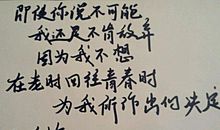 即使你说不可能
我还是不愉放弃
因为我不想
在老时回往青春时
为我所作出的失足